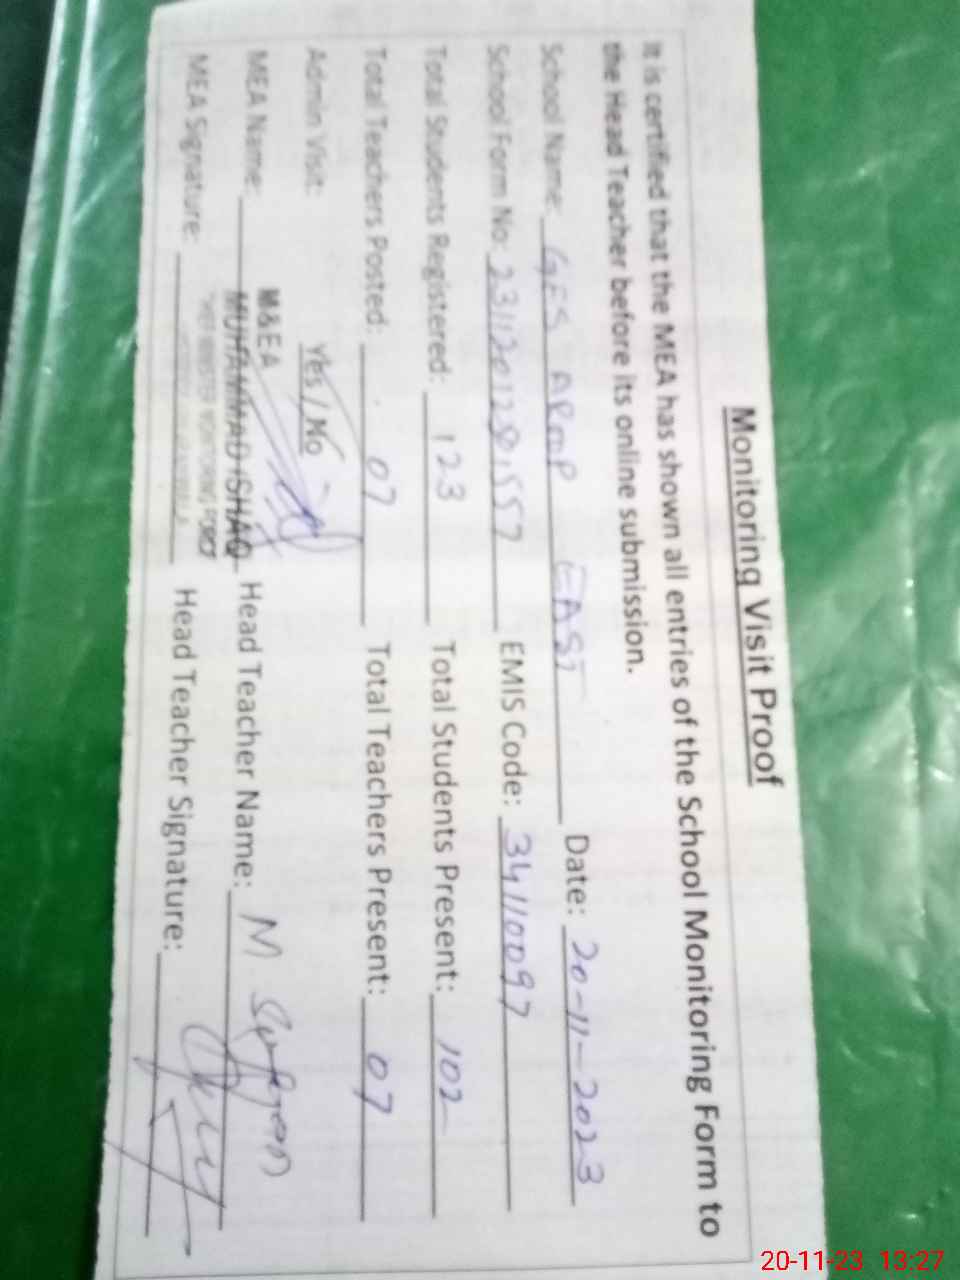 Monitoring Visit Proof
It is certified that the MEA has shown all entries of the School Monitoring Form to
the Head Teacher before its online submission.
School Name: GES AROOP EAST Date: 20-11-2023
School Form No: EMIS Code: 34110097
Total Students Registered: 123 Total Students Present: 102
Total Teachers Posted: 07 Total Teachers Present: 07
Admin Visit: Yes / No
M&EA
MEA Name: MUHAMMAD ISHAQ Head Teacher Name: M
MEA Signature: Head Teacher Signature:
20-11-23 13:27